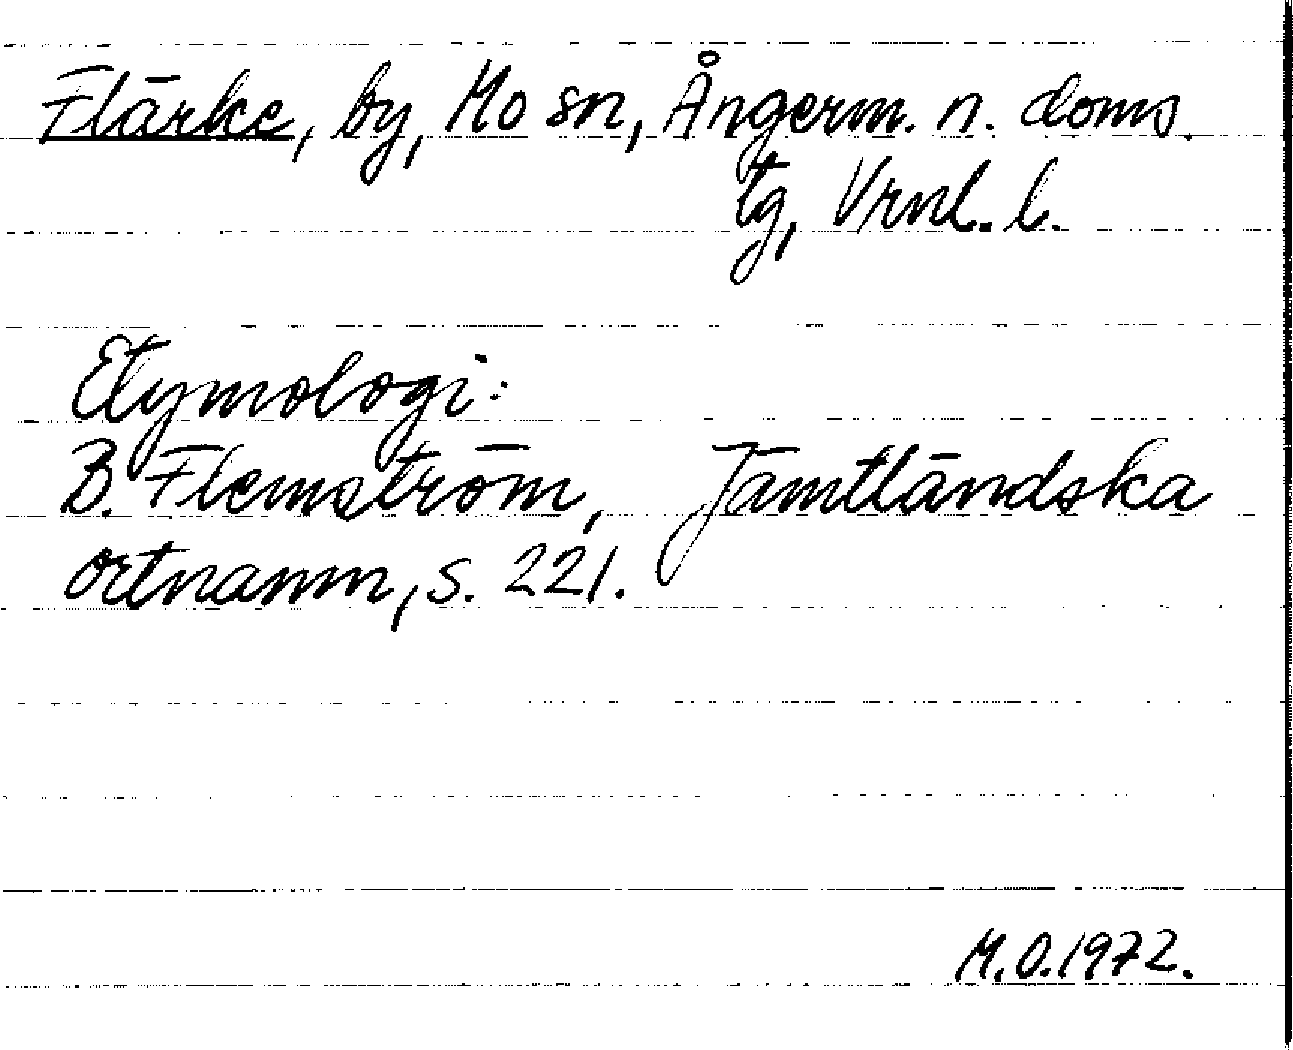 Flärke, by, Mo sn, Ångerm. n. doms.
tg, Vrnl. l.
Etymologi:
B. Flemström, Jämtländska
ortnamn, s. 221.
M.O.1972.